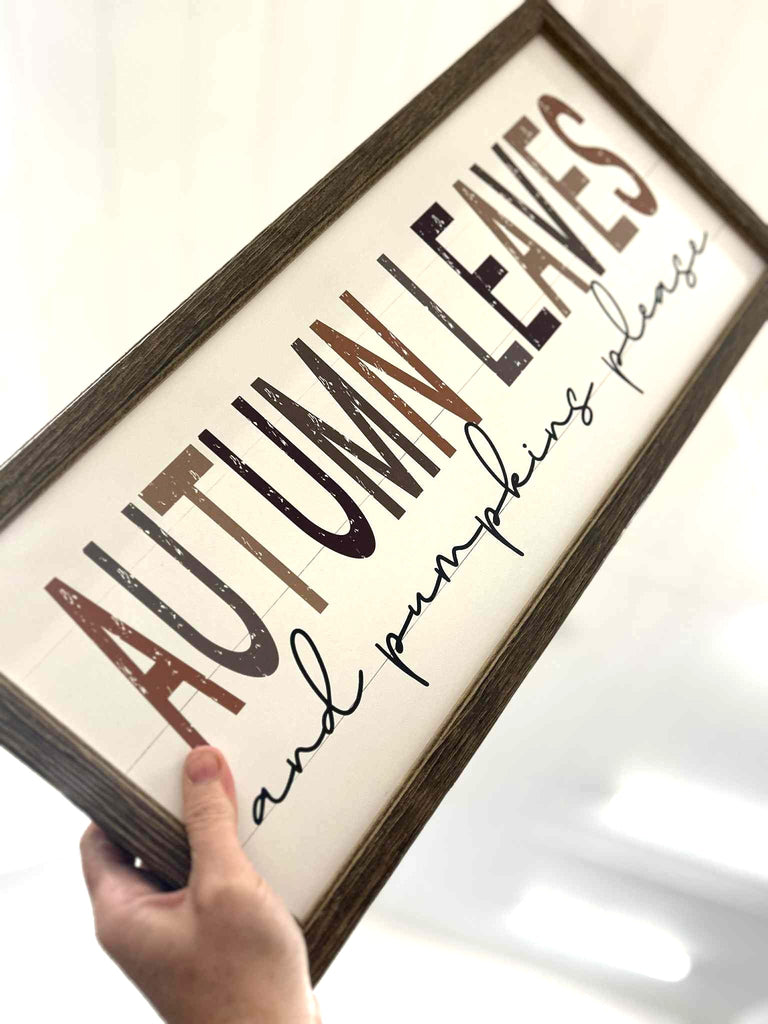 AUTUMN LEAVES
and pumpkins please